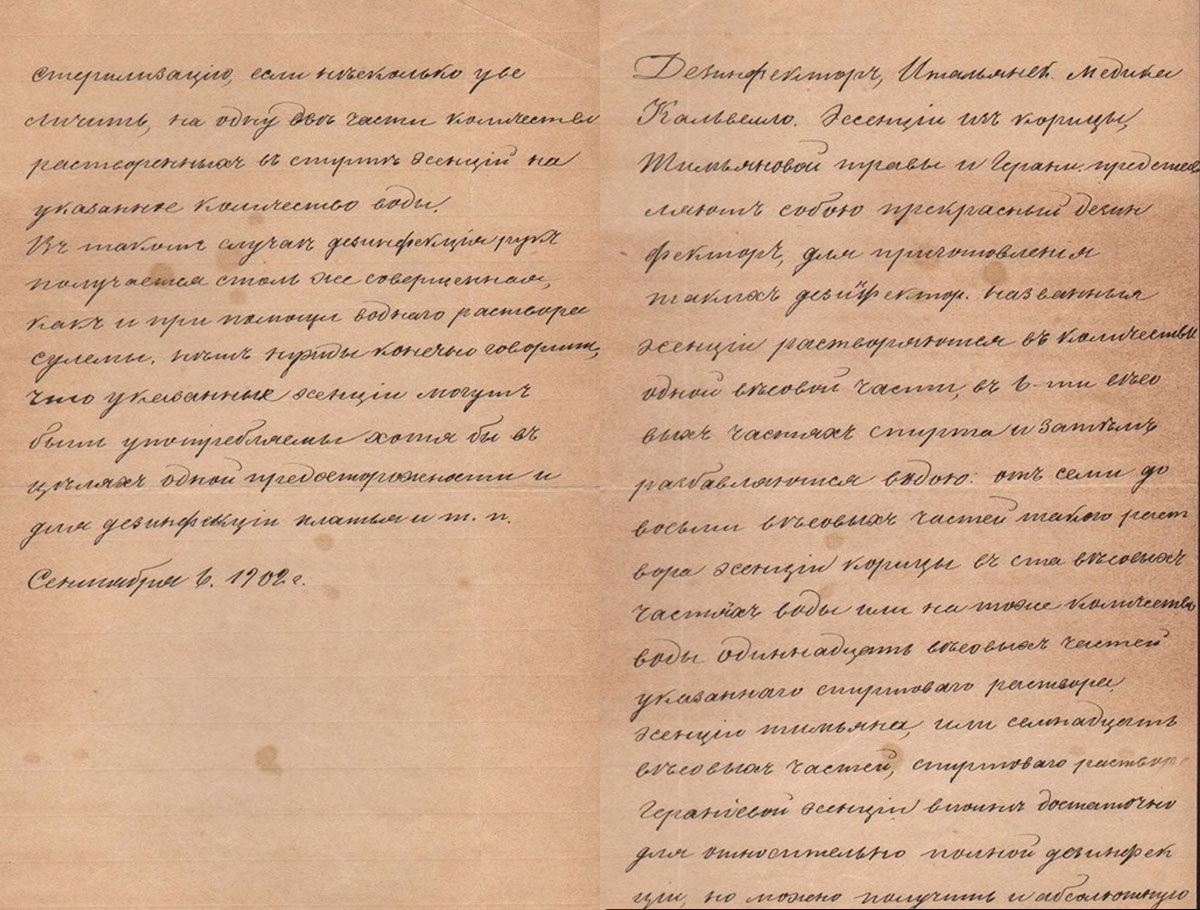 Дезинфекторъ, Итальянск. медика
Кальвелло. Эссенціи изъ корицы,
Тимьяновой травы и Геран. представ
ляютъ собою прекрасный дезин
фекторъ, для приготовления
такихъ дезинфектор. названныя
эсенціи растворяются въ количествѣ
одной вѣсовой части, въ 6-ти вѣсо
выхъ частяхъ спирта и затѣмъ
разбавляются водою: отъ семи до
восьми вѣсовыхъ частей такого раст
вора эсенціи корицы въ ста вѣсовыхъ
частяхъ воды или на тоже количество
воды одиннадцать вѣсовыхъ частей
указаннаго спиртоваго раствора
эсенціи тимьяна, или семнадцать
вѣсовыхъ частей, спиртоваго раствора
Гераніевой эсенціи вполнѣ достаточно
для относительно полной дезинфек
ціи, но можно получить и абсолютную
стерилизацію, если нѣсколько уве
личить, на одну двѣ части количество
растворенныхъ въ спиртѣ эсенцій на
указанное количество воды.
Въ такомъ случаѣ дезинфекція рукъ
получается столь же совершенная,
какъ и при помощи воднаго раствора
сулемы. нѣтъ нужды конечно говорить,
что указанныя эсенціи могутъ
быть употребляемы хотя бы въ
цѣляхъ одной предосторожности и
для дезинфекціи платья и т. п.
Сентября 6. 1902 г.